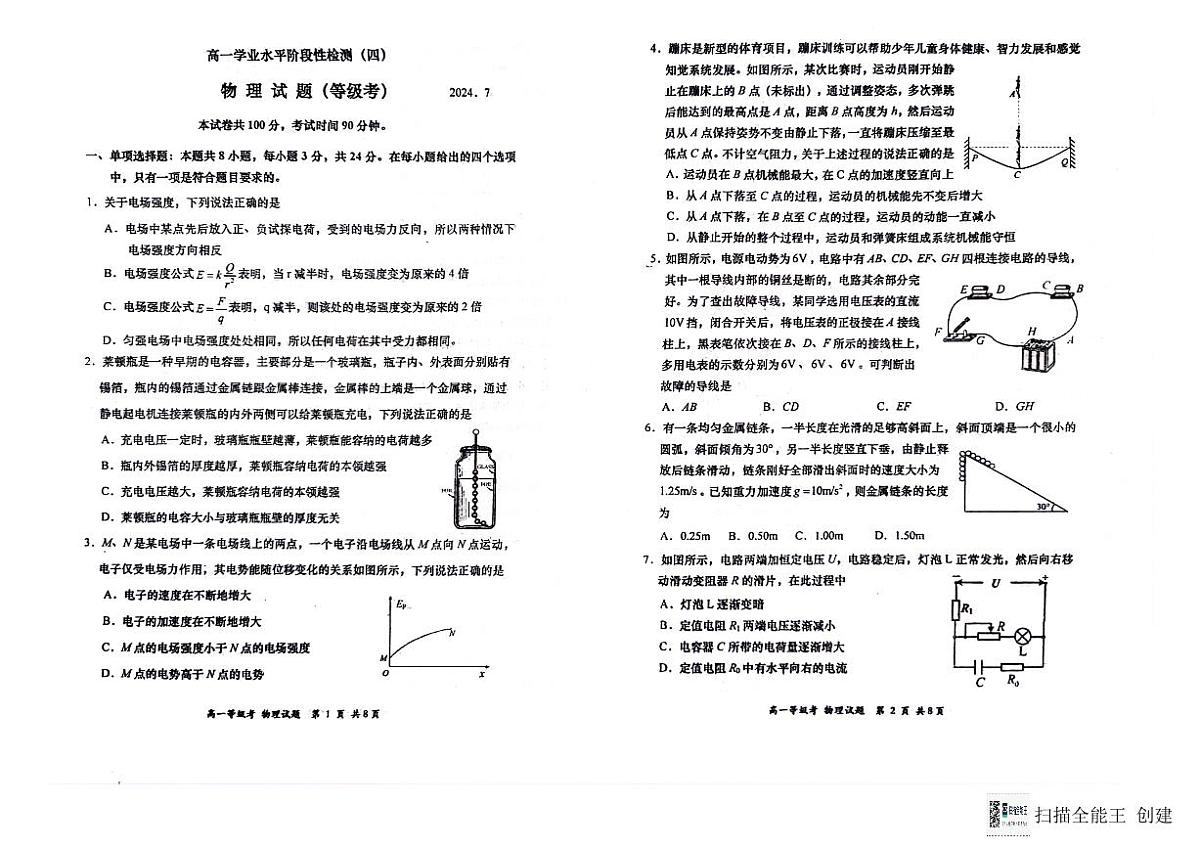 高一学业水平阶段性检测（四）
物 理 试 题（等级考）
2024．7
本试卷共100分，考试时间90分钟。
一、单项选择题：本题共8小题，每小题3分，共24分。在每小题给出的四个选项
中，只有一项是符合题目要求的。
1．关于电场强度，下列说法正确的是
A．电场中某点先后放入正、负试探电荷，受到的电场力反向，所以两种情况下
电场强度方向相反
B．电场强度公式E=kQ/r²表明，当r减半时，电场强度变为原来的4倍
C．电场强度公式E=F/q表明，q减半，则该处的电场强度变为原来的2倍
D．匀强电场中电场强度处处相同，所以任何电荷在其中受力都相同。
2．莱顿瓶是一种早期的电容器，主要部分是一个玻璃瓶，瓶子内、外表面分别贴有
锡箔，瓶内的锡箔通过金属链跟金属棒连接，金属棒的上端是一个金属球，通过
静电起电机连接莱顿瓶的内外两侧可以给莱顿瓶充电，下列说法正确的是
A．充电电压一定时，玻璃瓶瓶壁越薄，莱顿瓶能容纳的电荷越多
B．瓶内外锡箔的厚度越厚，莱顿瓶容纳电荷的本领越强
C．充电电压越大，莱顿瓶容纳电荷的本领越强
D．莱顿瓶的电容大小与玻璃瓶瓶壁的厚度无关
3．M、N是某电场中一条电场线上的两点，一个电子沿电场线从M点向N点运动，
电子仅受电场力作用；其电势能随位移变化的关系如图所示，下列说法正确的是
A．电子的速度在不断地增大
B．电子的加速度在不断地增大
C．M点的电场强度小于N点的电场强度
D．M点的电势高于N点的电势
Ep
N
M
O
x
高一等级考 物理试题 第 1 页 共8页
4．蹦床是新型的体育项目，蹦床训练可以帮助少年儿童身体健康、智力发展和感觉
知觉系统发展。如图所示，某次比赛时，运动员刚开始静
止在蹦床上的B点（未标出），通过调整姿态，多次弹跳
后能达到的最高点是A点，距离B点高度为h，然后运动
员从A点保持姿势不变由静止下落，一直将蹦床压缩至最
低点C点。不计空气阻力，关于上述过程的说法正确的是
A．运动员在B点机械能最大，在C点的加速度竖直向上
B．从A点下落至C点的过程，运动员的机械能先不变后增大
C．从A点下落，在B点至C点的过程，运动员的动能一直减小
D．从静止开始的整个过程中，运动员和弹簧床组成系统机械能守恒
A
P
Q
C
5．如图所示，电源电动势为6V，电路中有AB、CD、EF、GH四根连接电路的导线，
其中一根导线内部的铜丝是断的，电路其余部分完
好。为了查出故障导线，某同学选用电压表的直流
10V挡，闭合开关后，将电压表的正极接在A接线
柱上，黑表笔依次接在B、D、F所示的接线柱上，
多用电表的示数分别为6V、6V、6V。可判断出
故障的导线是
A．AB
B．CD
C．EF
D．GH
E
D
C
B
F
G
H
A
6．有一条均匀金属链条，一半长度在光滑的足够高斜面上，斜面顶端是一个很小的
圆弧，斜面倾角为30°，另一半长度竖直下垂，由静止释
放后链条滑动，链条刚好全部滑出斜面时的速度大小为
1.25m/s。已知重力加速度g=10m/s²，则金属链条的长度
为
A．0.25m
B．0.50m
C．1.00m
D．1.50m
30°
7．如图所示，电路两端加恒定电压U，电路稳定后，灯泡L正常发光，然后向右移
动滑动变阻器R的滑片，在此过程中
A．灯泡L逐渐变暗
B．定值电阻R₁两端电压逐渐减小
C．电容器C所带的电荷量逐渐增大
D．定值电阻R₀中有水平向右的电流
U
R₁
R
L
C
R₀
高一等级考 物理试题 第 2 页 共8页
扫描全能王 创建